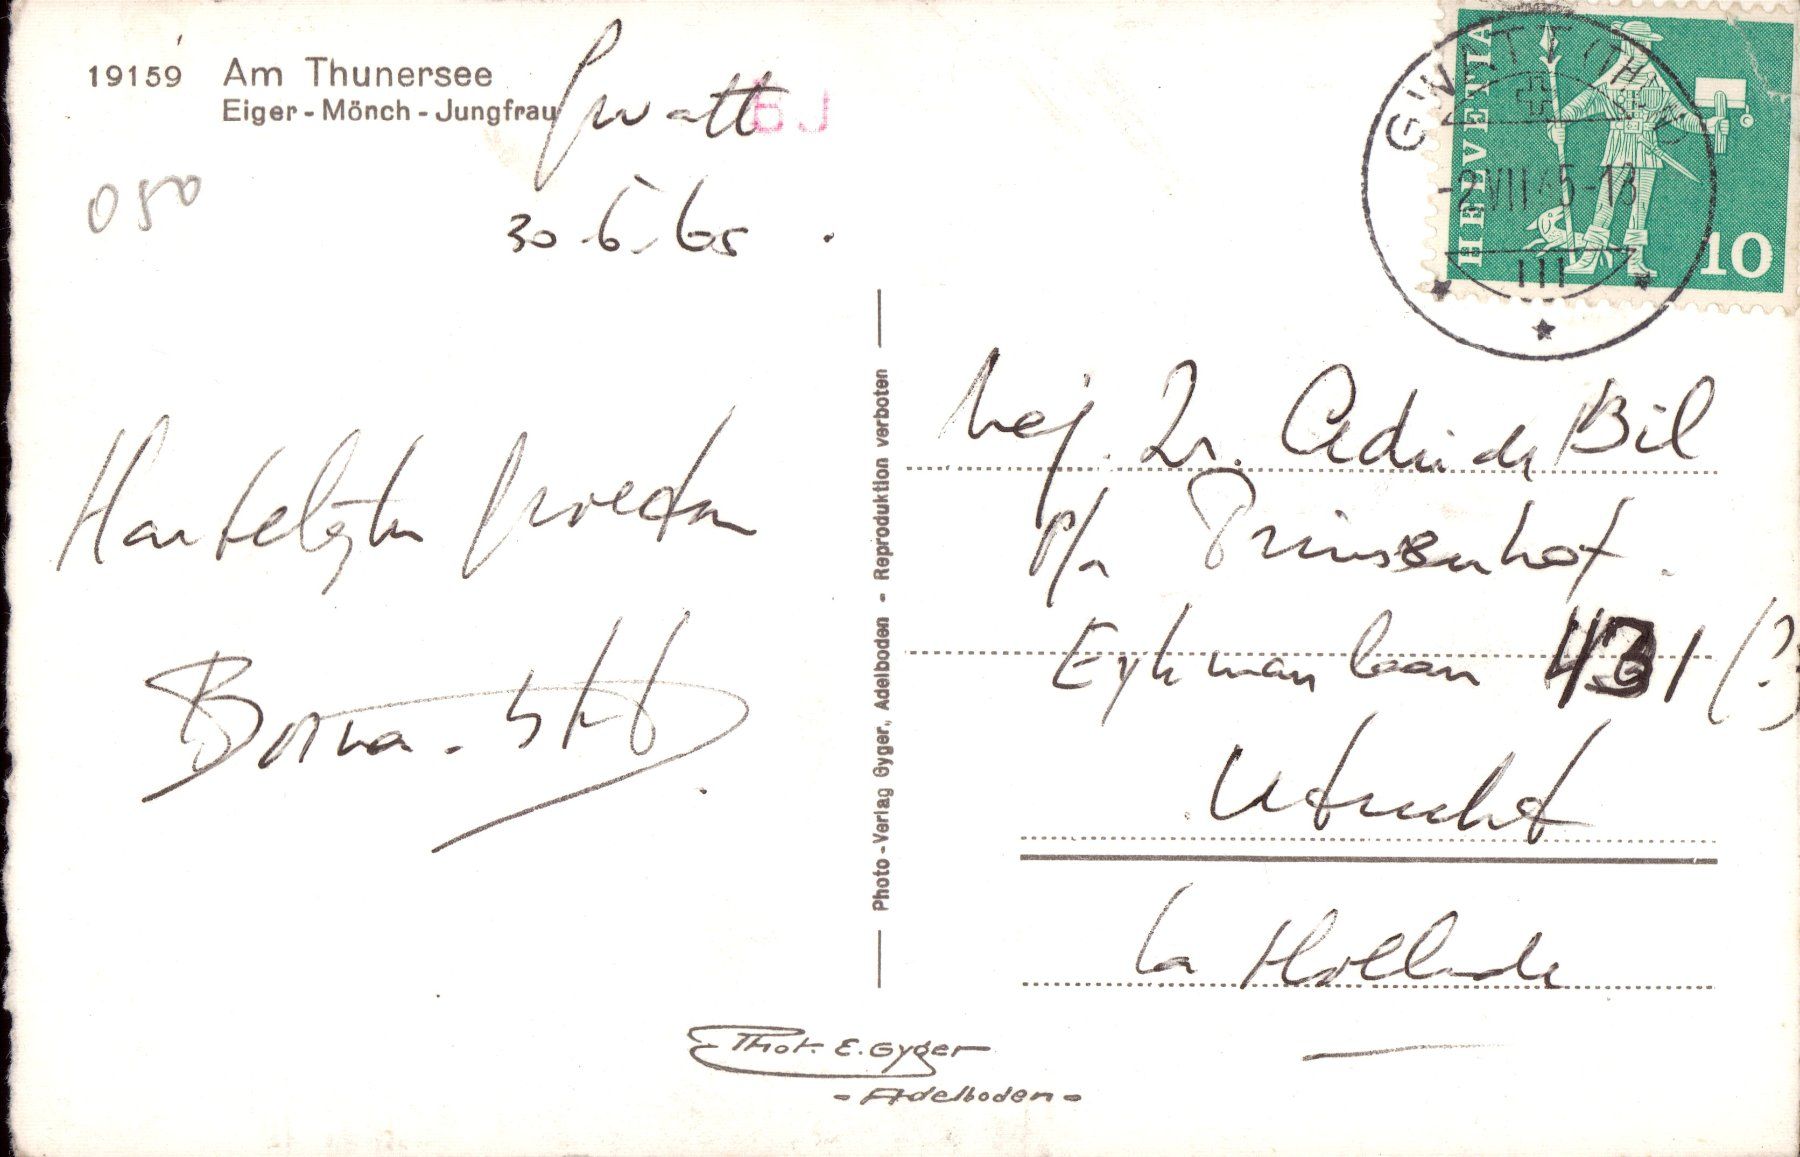 19159 Am Thunersee
Eiger - Mönch - Jungfrau
Gwatt
BJ
050
30-6-65.
Hartelijke groeten
HELVETIA
10
GWATT (THUN)
-2.VII.65-18
III
Mej. Zr. Adri de Bil
p/a Prinsenhof.
Eykmanlaan 431 (?)
Utrecht
La Hollande
Photo-Verlag Gyger, Adelboden - Reproduktion verboten
Phot. E. Gyger
- Adelboden -